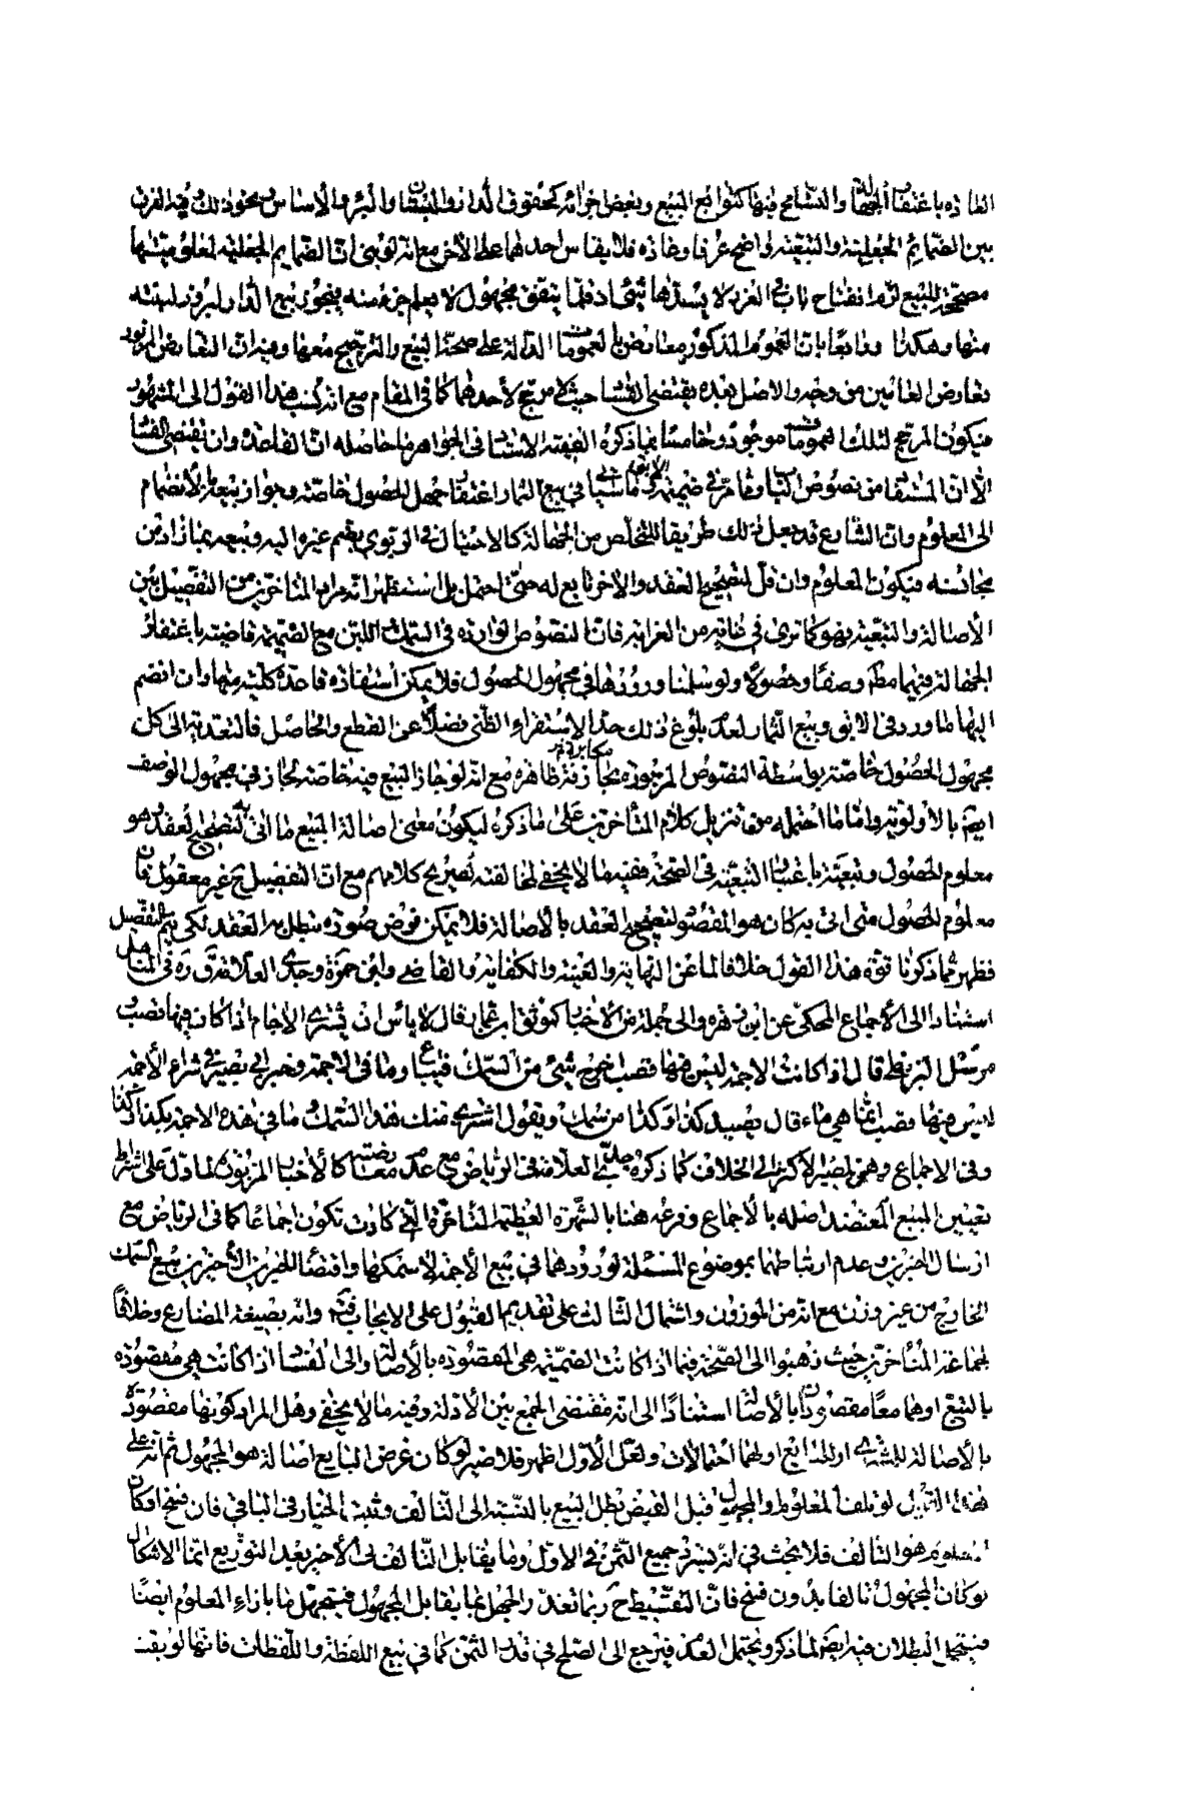 العادة باغتفار الجهالة والتسامح فيها كتوابع المبيع وبعض اجزائه كحقوق الدار والبستان والبئر والاساس ونحو ذلك وفيه الفرق
بين الضمائم الجعلية والتبعية واضح عرفا وعادة فلا يقاس احدهما على الاخر مع انه لو بنى ان الضمايم الجعلية لمعلوميتها
مصححة للبيع لزم انفتاح باب في الغرر لا يسدها شئ اذ قلما يتفق مجهول لا يعلم جزء منه فيجوز بيع الدار الغير المرئية لبينة
منها وهكذا ورابعا بان العموم المذكور معارض بالعمومات الدالة على صحة البيع والترجيح معها وميزان التعارض المزبور
تعارض العامين من وجه والاصل بعده يقتضى الفساد حيث لا مرجح لاحدهما كما في المقام مع انه نسب هذا القول الى المشهور
فيكون المرجح لتلك العمومات موجود وخامسا بما ذكره الفقيه الاستاد في الجواهر ما حاصله ان القاعدة وان تقتضى الفساد
الا ان المستفاد من نصوص الباب وما مر في ضميمة الآبق وما سيأتي في بيع الثمار اغتفار جهل الحصول خاصة وجواز بيعه بالانضمام
الى المعلوم وان الشارع قد جعل ذلك طريقا للتخلص من الجهالة كالاحتيال في الربوى بضم غيره اليه وبيعه بما زاد من
مجانسه فيكون المعلوم وان قل لتصحيح العقد والاخر تابع له حتى احتمل بل استظهر انه مراد المتأخرين من التفصيل بين
الاصالة والتبعية وهو كما ترى في غاية من الغرابة فان النصوص الواردة في السمك واللبن مع الضميمة قاضية باغتفار
الجهالة فيهما مطلقا وصفا وحصولا ولو سلمنا ورودها في مجهول الحصول فلا يمكن استفادة قاعدة كلية منها وان انضم
اليها ما ورد في الابق وبيع الثمار لعدم بلوغ ذلك حد الاستقراء الظنى فضلا عن القطع والحاصل فالتعدية الى كل
مجهول الحصول خاصة بواسطة النصوص المزبورة مجازفة ظاهرة مع انه لو جاز البيع فيه خاصة لجاز في مجهول الوصف
ايضا بالاولوية واما ما احتمله من تنزيل كلام المتأخرين على ما ذكره ليكون معنى اصالة المبيع ما اتى به لتصحيح العقد وهو
معلوم الحصول وتبعيته باعتبار التبعية في الصحة ففيه ما لا يخفى لمخالفته لصريح كلامهم مع ان التفصيل ح غير معقول فان
معلوم الحصول متى اتى به كان هو المقصود لتصحيح العقد بالاصالة فلا يمكن فرض صورة يبطل بها العقد لكى يتم التفصيل
فظهر مما ذكرنا قوة هذا القول خلافا لما عن النهاية والغنية والكفاية والقاضي وابن حمزة وجدى العلامة قدس سره في المناهل
استنادا الى الاجماع المحكى عن ابن زهرة والى جملة من الاخبار كموثق ابن عمار قال لا بأس ان يشترى الاجام اذا كان فيها قصب
مرسل البزنطي قال اذا كانت الاجمة ليس فيها قصب اخرج شئ من السمك فيباع وما في الاجمة وخبر ابي بصير في شراء الاجمة
ليس فيها قصب انما هي ماء قال يصيد كفا او كذا من سمك ويقول اشترى منك هذا السمك وما في هذه الاجمة بكذا وكذا
وفي الاجماع وهن لمصير الاكثر الى الخلاف كما ذكره جدى العلامة في الرياض مع عدم معارضته كالاخبار المزبورة لما دل على اشتراط
تعيين المبيع المعتضد اصله بالاجماع وفرعه هنا بالشهرة العظيمة المتأخرة التي كادت تكون اجماعا كما في الرياض مع
ارسال الخبرين وعدم ارتباطهما بموضوع المسئلة لورودهما في بيع الاجمة لا سمكها واقتضاء الخبرين الاخيرين بيع السمك
الخارج من غير وزن مع انه من الموزون واشتمال الثالث على تقديم القبول على الايجاب فيه وانه بصيغة المضارع وخلافا
لجماعة المتأخرين حيث ذهبوا الى الصحة فيما اذا كانت الضميمة هى المقصودة بالاصالة والى الفساد اذا كانت هي مقصودة
بالتبع او هما معا مقصودان بالاصالة استنادا الى انه مقتضى الجمع بين الادلة وفيه ما لا يخفى وهل المراد كونها مقصودة
بالاصالة للمشترى او للبايع او لهما احتمالات ولعل الاول اظهر فلا ضير لو كان غرض البايع اصالة هو المجهول ثم انه على
هذا القول لو تلف المعلوم او المجهول قبل القبض بطل البيع بالنسبة الى التالف وثبت الخيار في الباقي فان فسخ او كان
المعلوم هو التالف فلا بحث في انه يسترد جميع الثمن في الاول وما يقابل التالف في الاخير بعد التوزيع انما الاشكال
لو كان المجهول تالفا بدون فسخ فان التقسيط ح ربما تعذر والجهل بما يقابل المجهول فيجهل ما بازاء المعلوم ايضا
فيحتمل البطلان فيه ايضا لما ذكر ويحتمل العدم فيرجع الى الصلح في قدر الثمن كما في بيع اللقطة واللقطات فانها لو بقيت